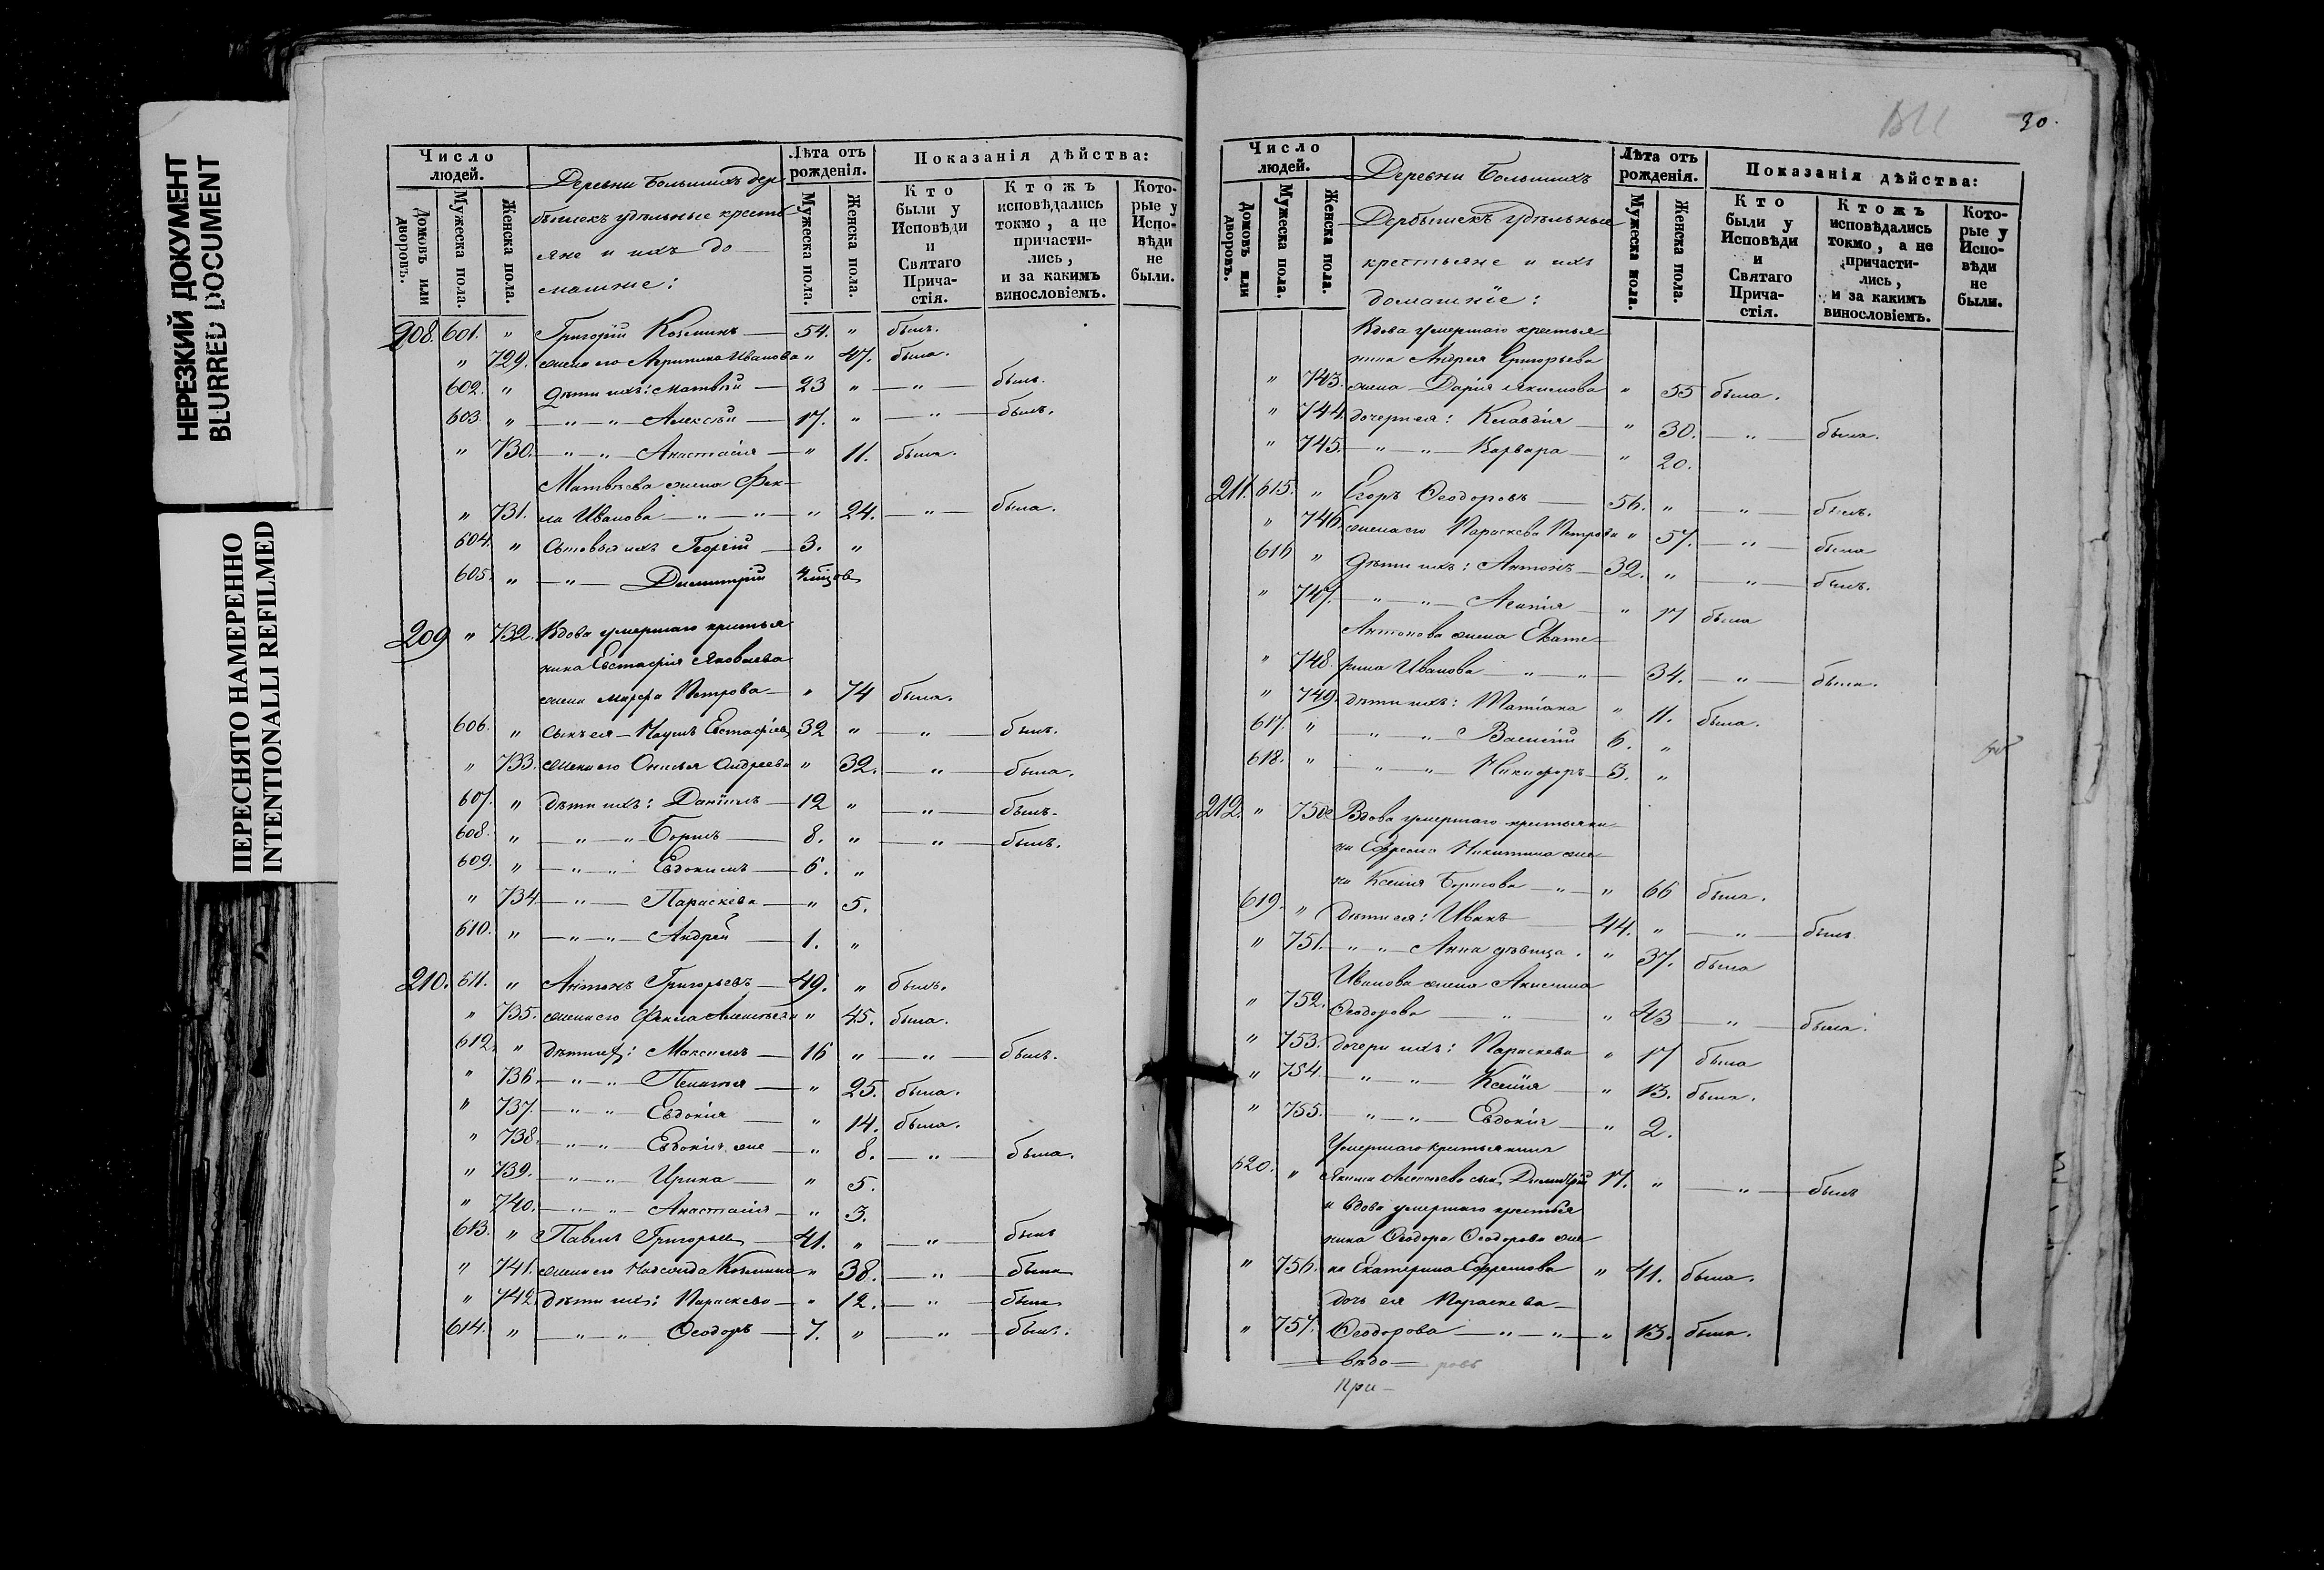 НЕРЕЗКИЙ ДОКУМЕНТ
BLURRED DOCUMENT
ПЕРЕСНЯТО НАМЕРЕННО
INTENTIONALLI REFILMED
Число людей.
Домовъ или дворовъ.
Мужеска пола.
Женска пола.
Деревни Большихъ Дер-
бышекъ удѣльные кресть-
яне и ихъ до-
машніе:
Лѣта отъ рожденія.
Мужеска пола.
Женска пола.
Показанія дѣйства:
Кто были у Исповѣди и Святаго Прича-стія.
Ктожъ исповѣдались токмо, а не причасти-лись, и за какимъ винословіемъ.
Кото-рые у Испо-вѣди не были.
208. 601. " Григорій Козминъ — 54. " былъ.
" 729. жена его Акулина Иванова " 47. была.
602. " дѣти ихъ: Матвѣй — 23 " — " — былъ.
603. " — " — " — Алексѣй — 17. " — " — былъ.
" 730. — " — " — Анастасія — " 11. была.
Матвѣева жена Фек-
" 731. ла Иванова — " — " — " 24. — " — была.
604. " Сыновья ихъ Георгій — 3. "
605. " — " — Димитрій
209 " 732. Вдова умершаго крестья
нина Евстафія Яковлева
жена Марфа Петрова — " 74 была.
606. " Сынъ ея — Наумъ Евстафіевъ 32 " — " — былъ.
" 733. жена его Онисья Андреева " 32. — " — была.
607. " дѣти ихъ: Даніилъ — 12 " — " — былъ.
608. " — " — " Борисъ — 8. " — " — былъ.
609. " — " — " Евдокимъ — 6. "
" 734. — " — Параскева — " 5.
610. " — " — " — Андрей — 1. "
210. 611. " Антонъ Григорьевъ — 49. " былъ.
" 735. жена его Фекла Алексѣева " 45. была.
612. " дѣти ихъ: Максимъ — 16 " — " — былъ.
" 736. — " — " — Пелагея — " 25. была.
" 737. — " — " Евдокія — " 14. была.
" 738. — " — " Евдокія же — " 8. — " — была.
" 739. — " — " Ирина — " 5.
" 740. — " — " Анастасія — " 3.
613. " Павелъ Григорьевъ — 41. " — " — былъ
" 741. жена его Козмина " 38. — " — была
" 742. дѣти ихъ: Параскева — " 12. — " — была
614. " — " — " — Ѳеодоръ — 7. " — " — былъ.
30.
Число людей.
Домовъ или дворовъ.
Мужеска пола.
Женска пола.
Деревни Большихъ
Дербышекъ удѣльные
крестьяне и ихъ
домашніе:
Лѣта отъ рожденія.
Мужеска пола.
Женска пола.
Показанія дѣйства:
Кто были у Исповѣди и Святаго Прича-стія.
Ктожъ исповѣдались токмо, а не причасти-лись, и за какимъ винословіемъ.
Кото-рые у Испо-вѣди не были.
Вдова умершаго крестья
нина Андрея Григорьева
" 743. жена — Дарія Якимова " 55 была.
" 744. дочери ея: Клавдія — " 30. — " — была.
" 745. — " — " — Варвара — " 20.
211. 615. " Егоръ Ѳеодоровъ — 56. " — " — былъ.
" 746. жена его Параскева Петрова " 57. — " — была
616 " дѣти ихъ: Антонъ — 32. " — " — былъ.
" 747. — " — " — — " 17 была
Антонова жена Екате-
" 748. рина Иванова — " — " — 34. — " — была.
" 749. дѣти ихъ: Татіана " 11. была.
617. " — " — " Василій 6. "
618. " — " — " Никифоръ — 3. "
212. " 750. Вдова умершаго крестьяни-
на Ефрема Никитина же-
на Ксенія Борисова — " — " 66 была.
619. " дѣти ея: Иванъ — 44. " — " — былъ
" 751. — " — " Анна дѣвица. " 37. была
Иванова жена Акилина
" 752. Ѳеодорова — " — " 43 — " — была.
" 753. дочери ихъ: Параскева " 17 была
" 754. — " — " — Ксенія — " 13. была.
" 755. — " — " — Евдокія — " 2.
Умершаго крестьянина
620. " Якима Алексѣева сынъ Димитрій 17. " — " — былъ
и вдова умершаго крестья
нина Ѳеодора Ѳеодорова же-
" 756. на Екатерина Ефремова " 41. была.
дочь ея Параскева —
" 757. Ѳеодорова — " — " — " 13. была.
При —